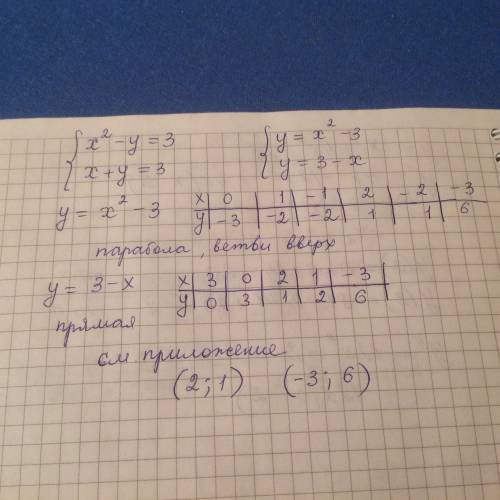 { x² - y = 3
x + y = 3
{ y = x² - 3
y = 3 - x
y = x² - 3
x | 0 | 1 | -1 | 2 | -2 | -3
y | -3 | -2 | -2 | 1 | 1 | 6
парабола, ветви вверх
y = 3 - x
x | 3 | 0 | 2 | 1 | -3
y | 0 | 3 | 1 | 2 | 6
прямая
см приложение
(2; 1) (-3; 6)